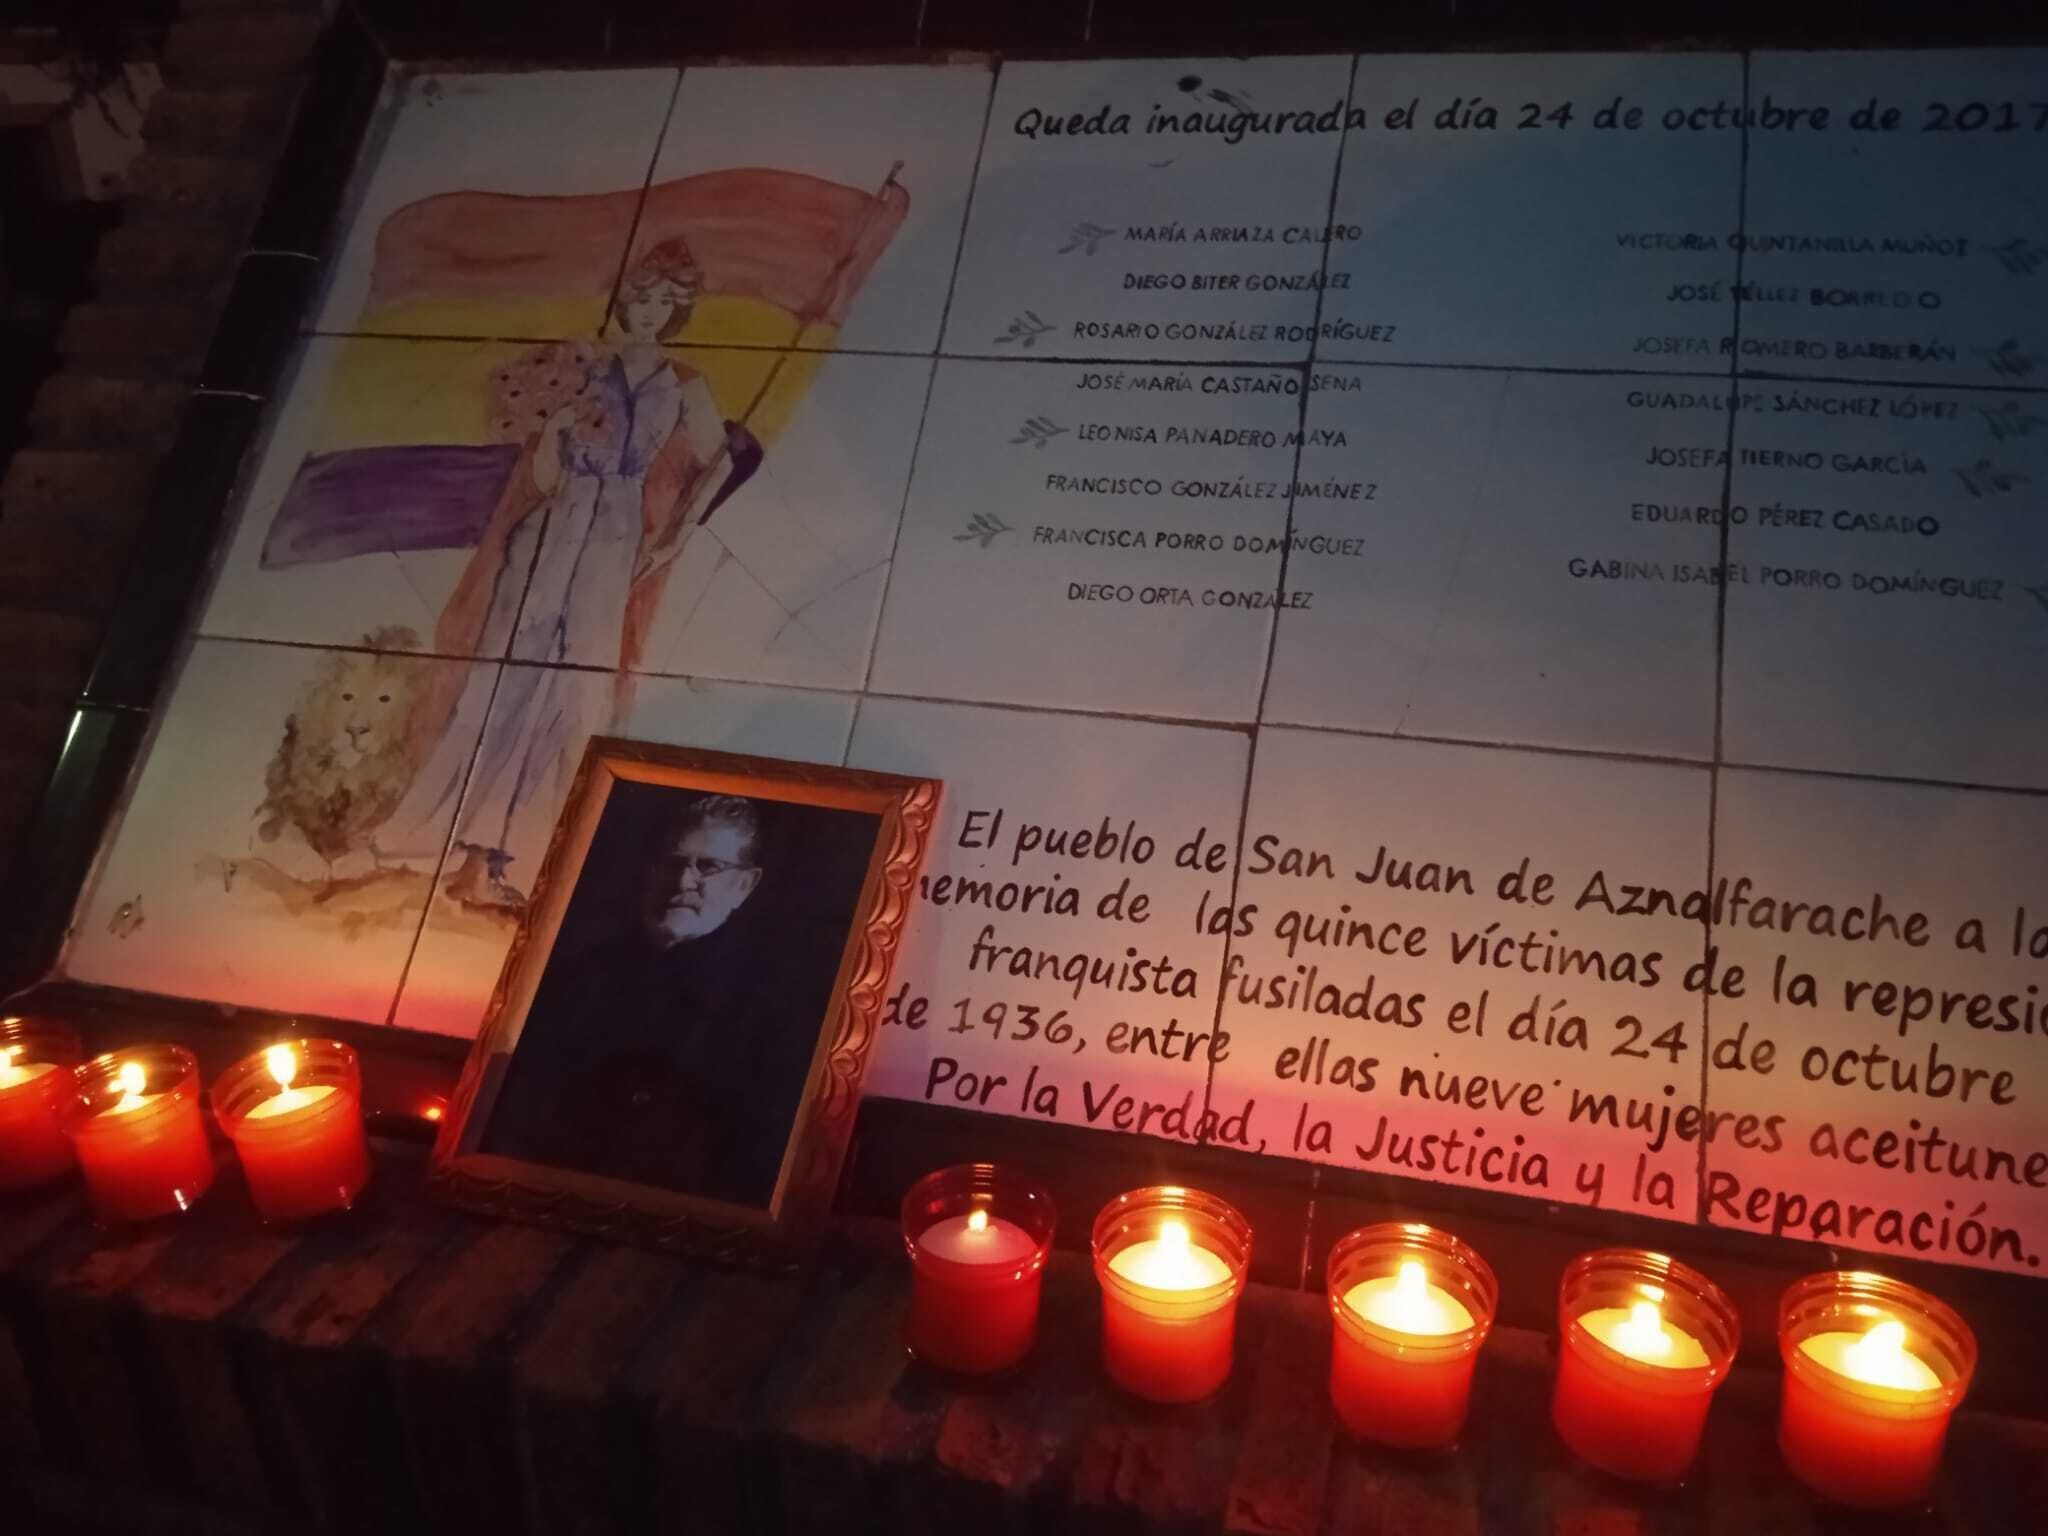 Queda inaugurada el día 24 de octubre de 2017
MARÍA ARRIAZA CALERO
DIEGO BITER GONZÁLEZ
ROSARIO GONZÁLEZ RODRÍGUEZ
JOSÉ MARÍA CASTAÑO SENA
LEONISA PANADERO MAYA
FRANCISCO GONZÁLEZ JIMÉNEZ
FRANCISCA PORRO DOMÍNGUEZ
DIEGO ORTA GONZÁLEZ
VICTORIA QUINTANILLA MUÑOZ
JOSÉ TÉLLEZ BORREGO
JOSEFA ROMERO BARBERÁN
GUADALUPE SÁNCHEZ LÓPEZ
JOSEFA TIERNO GARCÍA
EDUARDO PÉREZ CASADO
GABINA ISABEL PORRO DOMÍNGUEZ
El pueblo de San Juan de Aznalfarache a la
memoria de las quince víctimas de la represió
franquista fusiladas el día 24 de octubre
de 1936, entre ellas nueve mujeres aceitune
Por la Verdad, la Justicia y la Reparación.